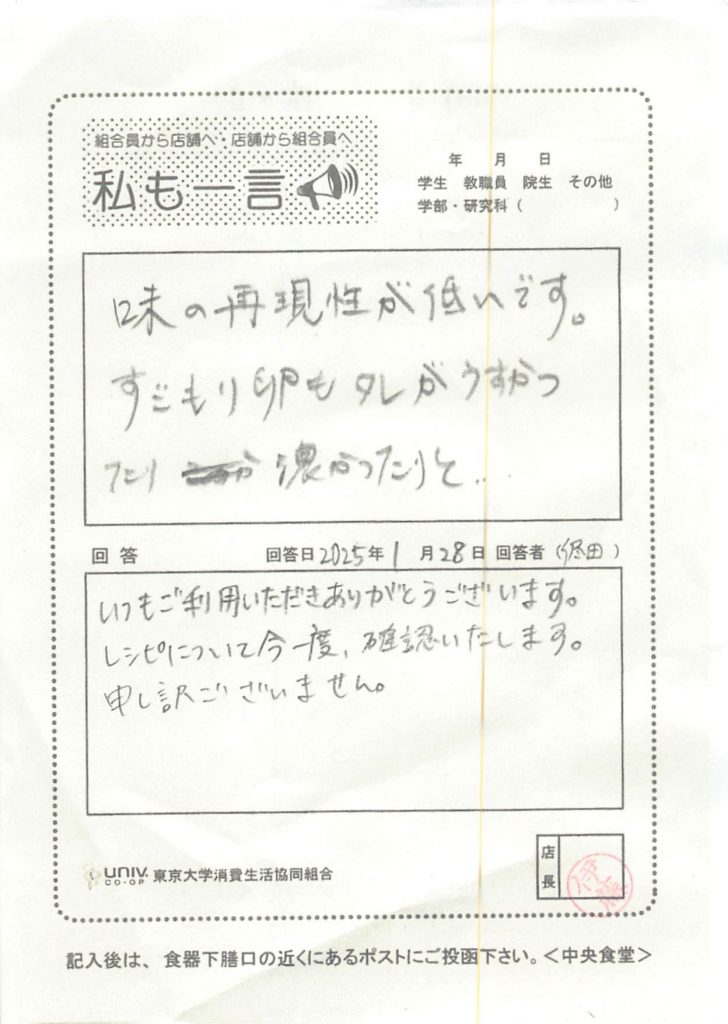 組合員から店舗へ・店舗から組合員へ
私も一言
年 月 日
学生 教職員 院生 その他
学部・研究科 ( )
味の再現性が低いです。
すごもり卵もタレがうすかっ
たり 濃かったりと...
回答 回答日 2025年 1月 28日 回答者 ( 田 )
いつもご利用いただきありがとうございます。
レシピについて今一度、確認いたします。
申し訳ございません。
店長
伊藤
UNIV. CO-OP 東京大学消費生活協同組合
記入後は、食器下膳口の近くにあるポストにご投函下さい。＜中央食堂＞